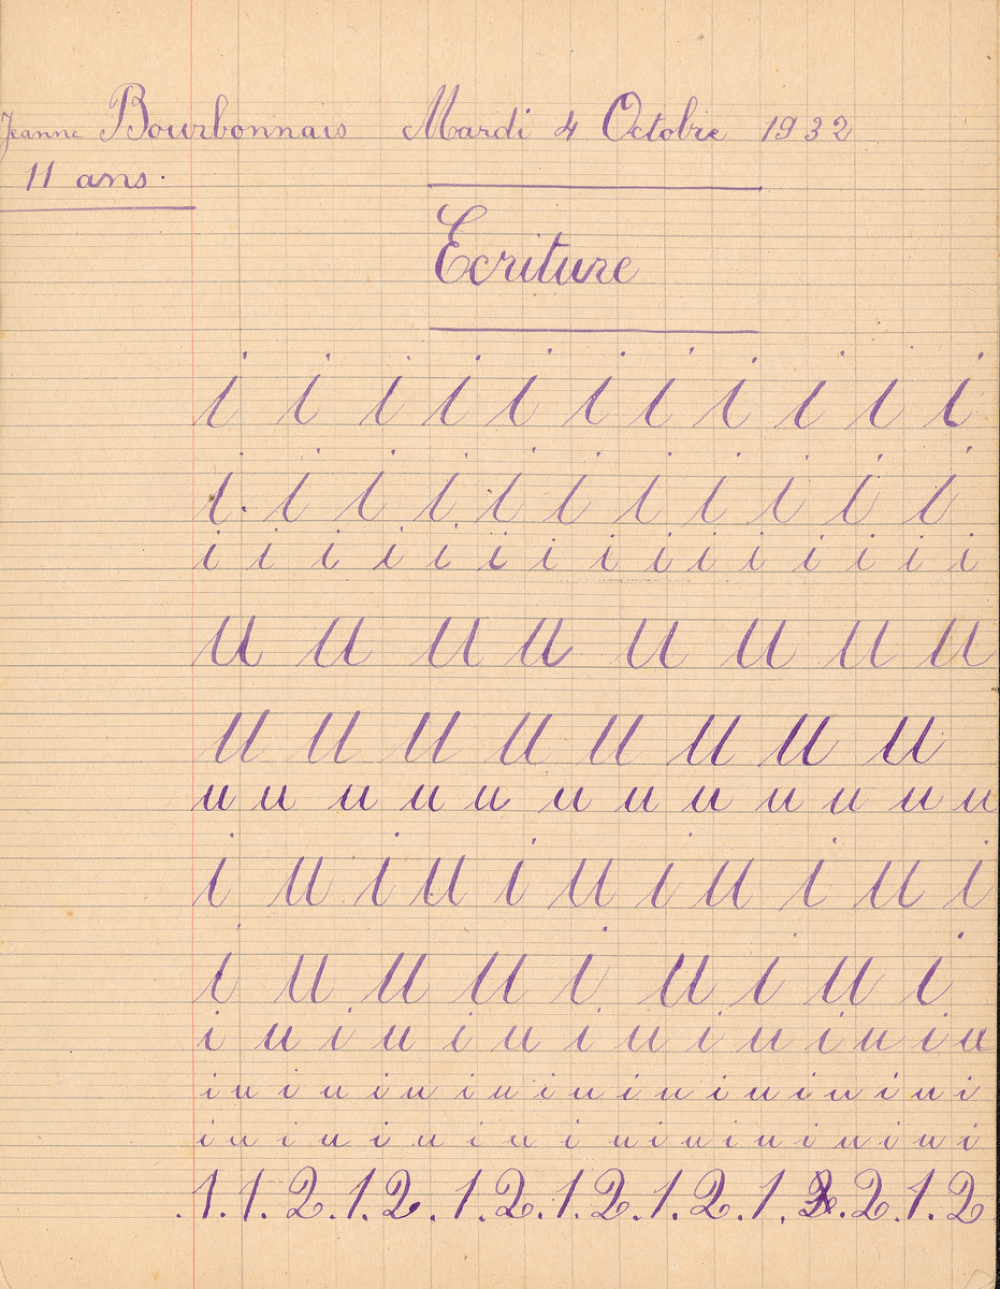 Jeanne Bourbonnais Mardi 4 Octobre 1932
11 ans.
Ecriture
i i i i i i i i i i i
i i i i i i i i i i i
i i i i i i i i i i i i i i i
u u u u u u u u
u u u u u u u u
u u u u u u u u u u u u
i u i u i u i u i u i
i u u u i u i u i
i u i u i u i u i u i u i u
i u i u i u i u i u i u i u i u i u i
i u i u i u i u i u i u i u i u i u i
.1.1.2.1.2.1.2.1.2.1.2.1.2.2.1.2